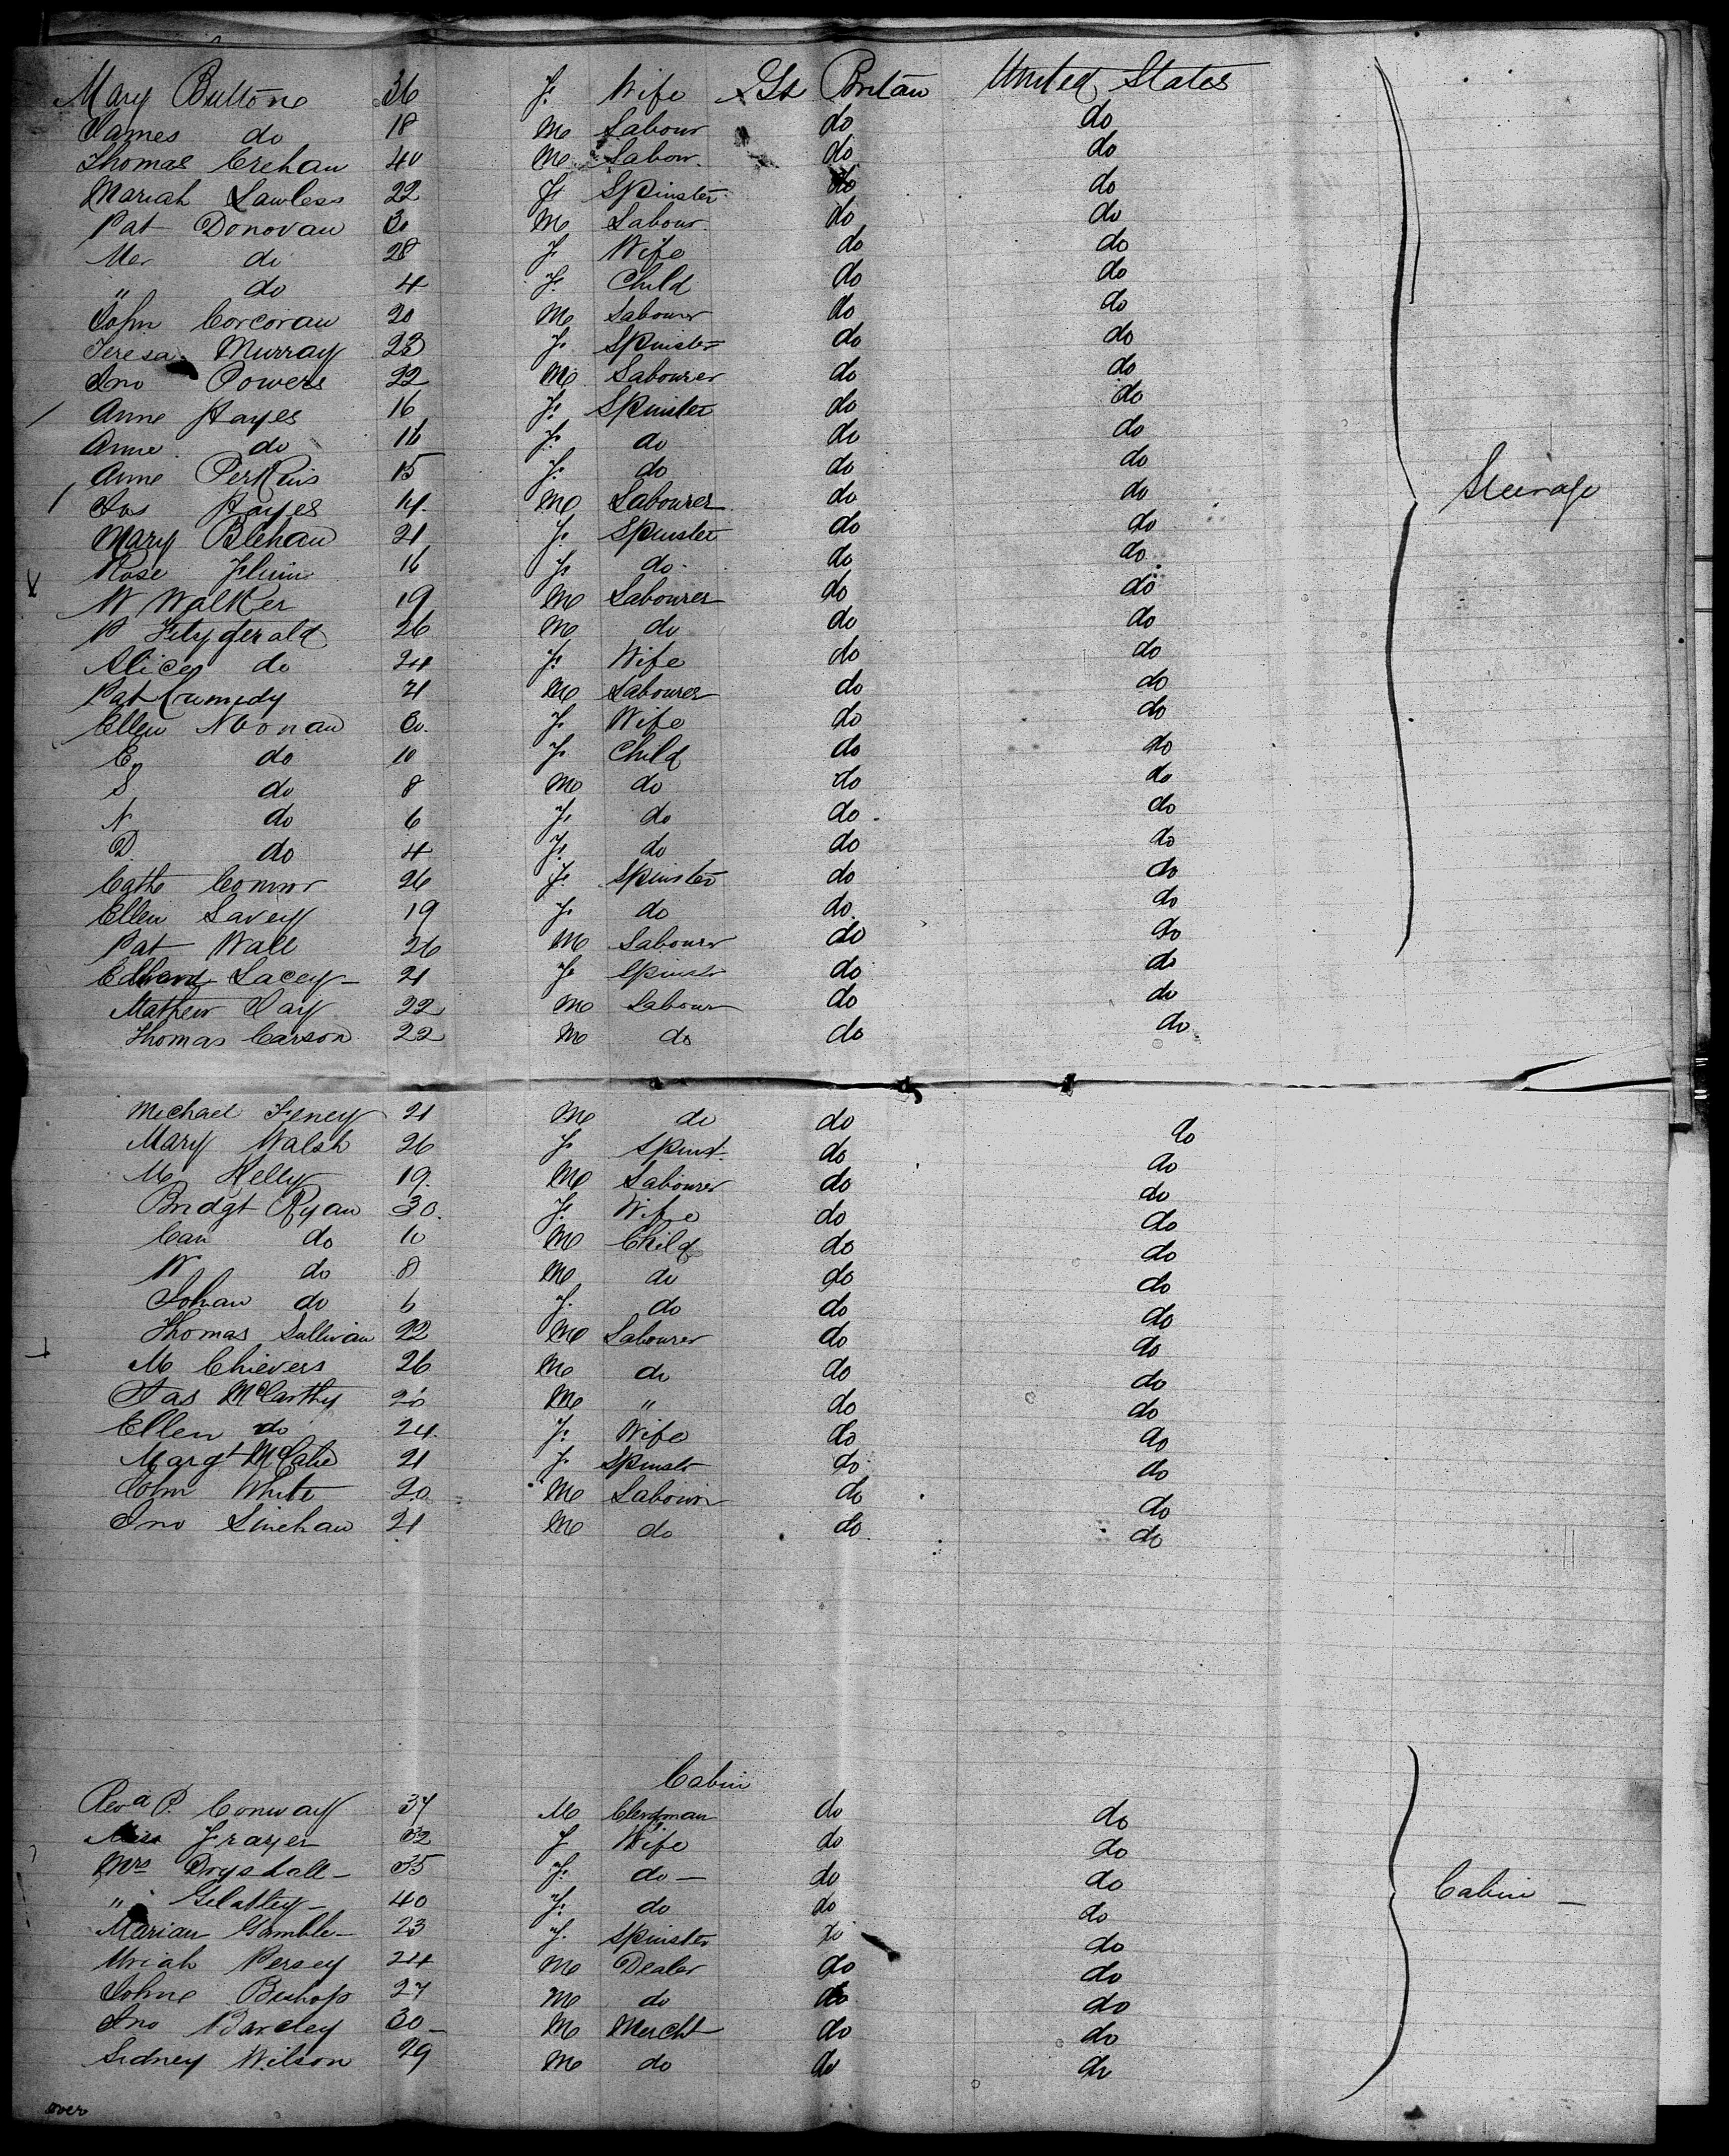 Mary Bultone 36 F. Wife Gt Britain United States
James do 18 M Labour do do
Thomas Crehan 40 M Labour. do do
Mariah Lawless 22 F Spinster do do
Pat Donovan 30 M Labour. do do
Mer do 28 F Wife do do
" do 4 F. Child do do
John Corcoran 20 M Labourer do do
Teresa Murray 23 F. Spinster do do
Jno Powers 22 M Labourer do do
Anne Hayes 16 F. Spinster do do
Anne do 16 F. do do do
Anne Perkins 15 F. do do do
Jos Hayes 14. M Labourer do do
Mary Blehan 21 F. Spinster do do
Rose Flinn 16 F. do do do
W Walker 19 M Labourer do do
P Fitzgerald 26 M do do do
Alice do 24 F. Wife do do
Pat Kennedy 21 M Labourer do do
Ellen Noonan 30. F. Wife do do
E do 10 F. Child do do
S do 8 M do do do
N do 6 F. do do do
D. do 4 F. do do do
Cathe Connor 26 F. Spinster do do
Ellen Lavey 19 F. do do do
Pat Wall 26 M Labourer do do
Lacey - 21 F Spinstr do do
Mathew Day 22 M Labour do do
Thomas Carson 22 M do do do
Steerage
Michael Feney 21 M do do do
Mary Walsh 26 F Spinst. do do
M Kelly 19. M Labourer do do
Bridgt Ryan 30. F. Wife do do
Can do 10 M Child do do
W do 8 M do do do
Johan do 6 F. do do do
Thomas Sullivan 22 M Labourer do do
M Chievers 26 M do do do
Jas McCarthy 26 M " do do
Ellen do 24. F. Wife do do
Margt McCabe 21 F Spinstr do do
John White 20 M Labour do do
Jno Linehan 21 M do do do
Cabin
Revd P. Conway 34 M Clergman do do
Miss Frazer 32 F Wife do do
Mrs Drysdall - 35 F. do - do do
" Gelatley - 40 F. do do do
Marian Gamble - 23 F. Spinster do do
Uriah Persey 24 M Dealer do do
Johne Bishop 27 M do do do
Jno Barcley 30 - M Mercht do do
Sidney Wilson 29 M do do do
Cabin -
over